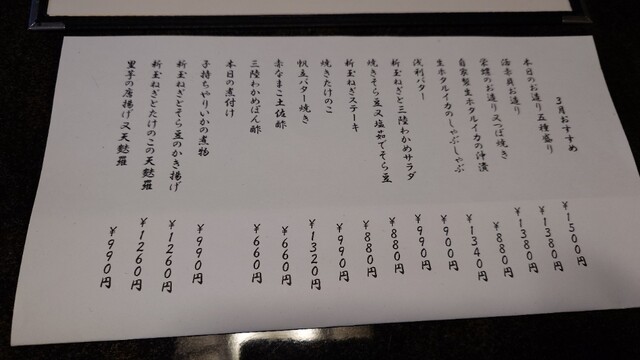 3月おすすめ
本日のお造り 五種盛り ¥1500円
活赤貝お造り ¥1380円
栄螺のお造り又つぼ焼き ¥1380円
自家製生ホタルイカの沖漬 ¥880円
生ホタルイカのしゃぶしゃぶ ¥1340円
浅利バター ¥900円
新玉ねぎと三陸わかめサラダ ¥990円
焼きそら豆又塩茹でそら豆 ¥880円
新玉ねぎステーキ ¥880円
焼きたけのこ ¥990円
帆立バター焼き ¥1320円
赤なまこ土佐酢 ¥660円
三陸わかめぽん酢 ¥660円
本日の煮付け
子持ちやりいかの煮物 ¥990円
新玉ねぎとそら豆のかき揚げ ¥1260円
新玉ねぎとたけのこの天麩羅 ¥1260円
里芋の唐揚げ又天麩羅 ¥990円